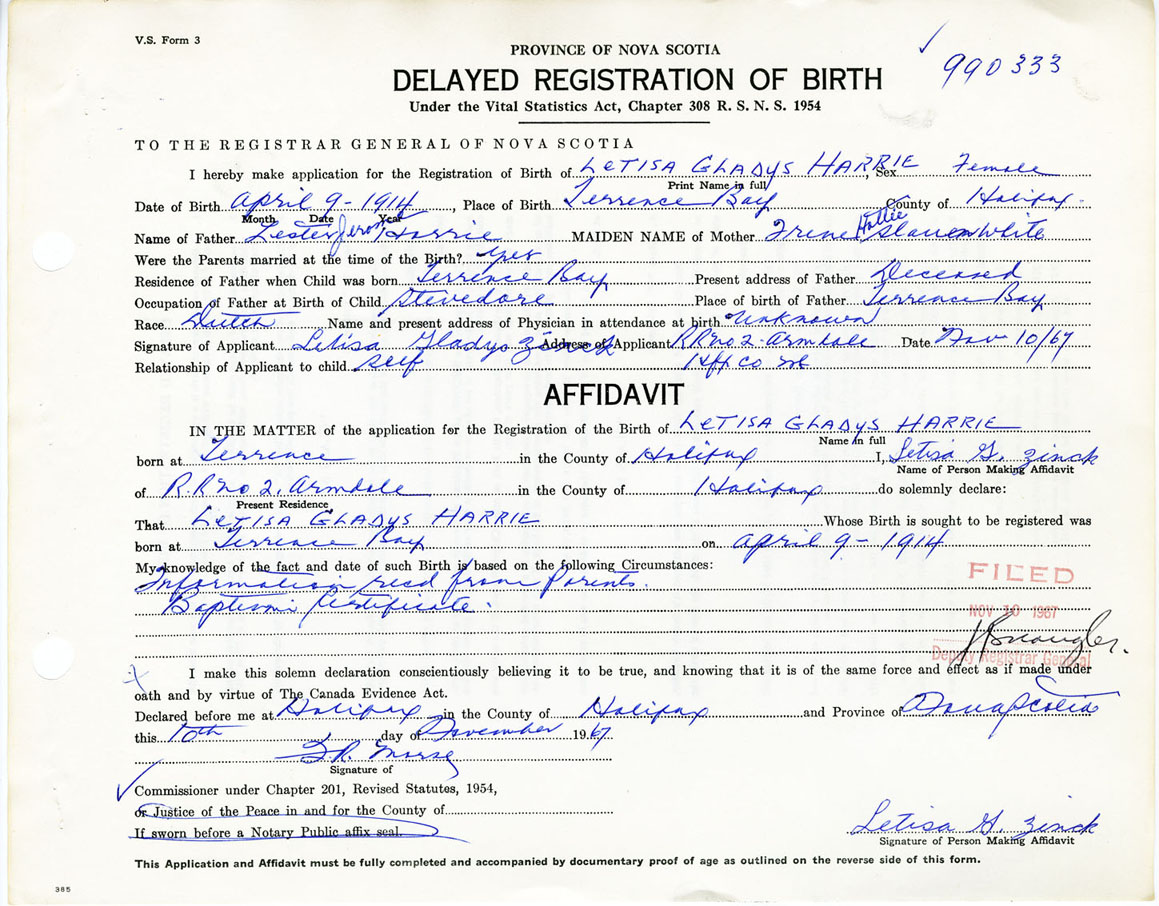 V.S. Form 3
990333
PROVINCE OF NOVA SCOTIA
DELAYED REGISTRATION OF BIRTH
Under the Vital Statistics Act, Chapter 308 R. S. N. S. 1954
TO THE REGISTRAR GENERAL OF NOVA SCOTIA
I hereby make application for the Registration of Birth of LETISA GLADYS HARRIE, Sex Female
Print Name in full
Date of Birth April 9 - 1914, Place of Birth Terrence Bay County of Halifax.
Month Date Year
Name of Father Lester Harrie MAIDEN NAME of Mother Irene Hattie White
Were the Parents married at the time of the Birth? yes
Residence of Father when Child was born Terrence Bay Present address of Father Deceased
Occupation of Father at Birth of Child Stevedore Place of birth of Father Terrence Bay
Race Dutch Name and present address of Physician in attendance at birth Unknown
Signature of Applicant Letisa Gladys Zinck Address of Applicant RR no 2 - Armdale Date Nov 10/67
Relationship of Applicant to child Self Hfx Co
AFFIDAVIT
IN THE MATTER of the application for the Registration of the Birth of LETISA GLADYS HARRIE
Name in full
born at Terrence in the County of Halifax I, Letisa G. Zinck
Name of Person Making Affidavit
of R.R no 2, Armdale in the County of Halifax do solemnly declare:
Present Residence
That LETISA GLADYS HARRIE Whose Birth is sought to be registered was
born at Terrence Bay on April 9 - 1914
My knowledge of the fact and date of such Birth is based on the following Circumstances:
Information recd from Parents.
Baptism Certificate.
FILED
NOV 10 1967
Deputy Registrar General
I make this solemn declaration conscientiously believing it to be true, and knowing that it is of the same force and effect as if made under
oath and by virtue of The Canada Evidence Act.
Declared before me at Halifax in the County of Halifax and Province of Nova Scotia
this 10th day of November 1967
Signature of
Commissioner under Chapter 201, Revised Statutes, 1954,
or Justice of the Peace in and for the County of
If sworn before a Notary Public affix seal.
Letisa G. Zinck
Signature of Person Making Affidavit
This Application and Affidavit must be fully completed and accompanied by documentary proof of age as outlined on the reverse side of this form.
385